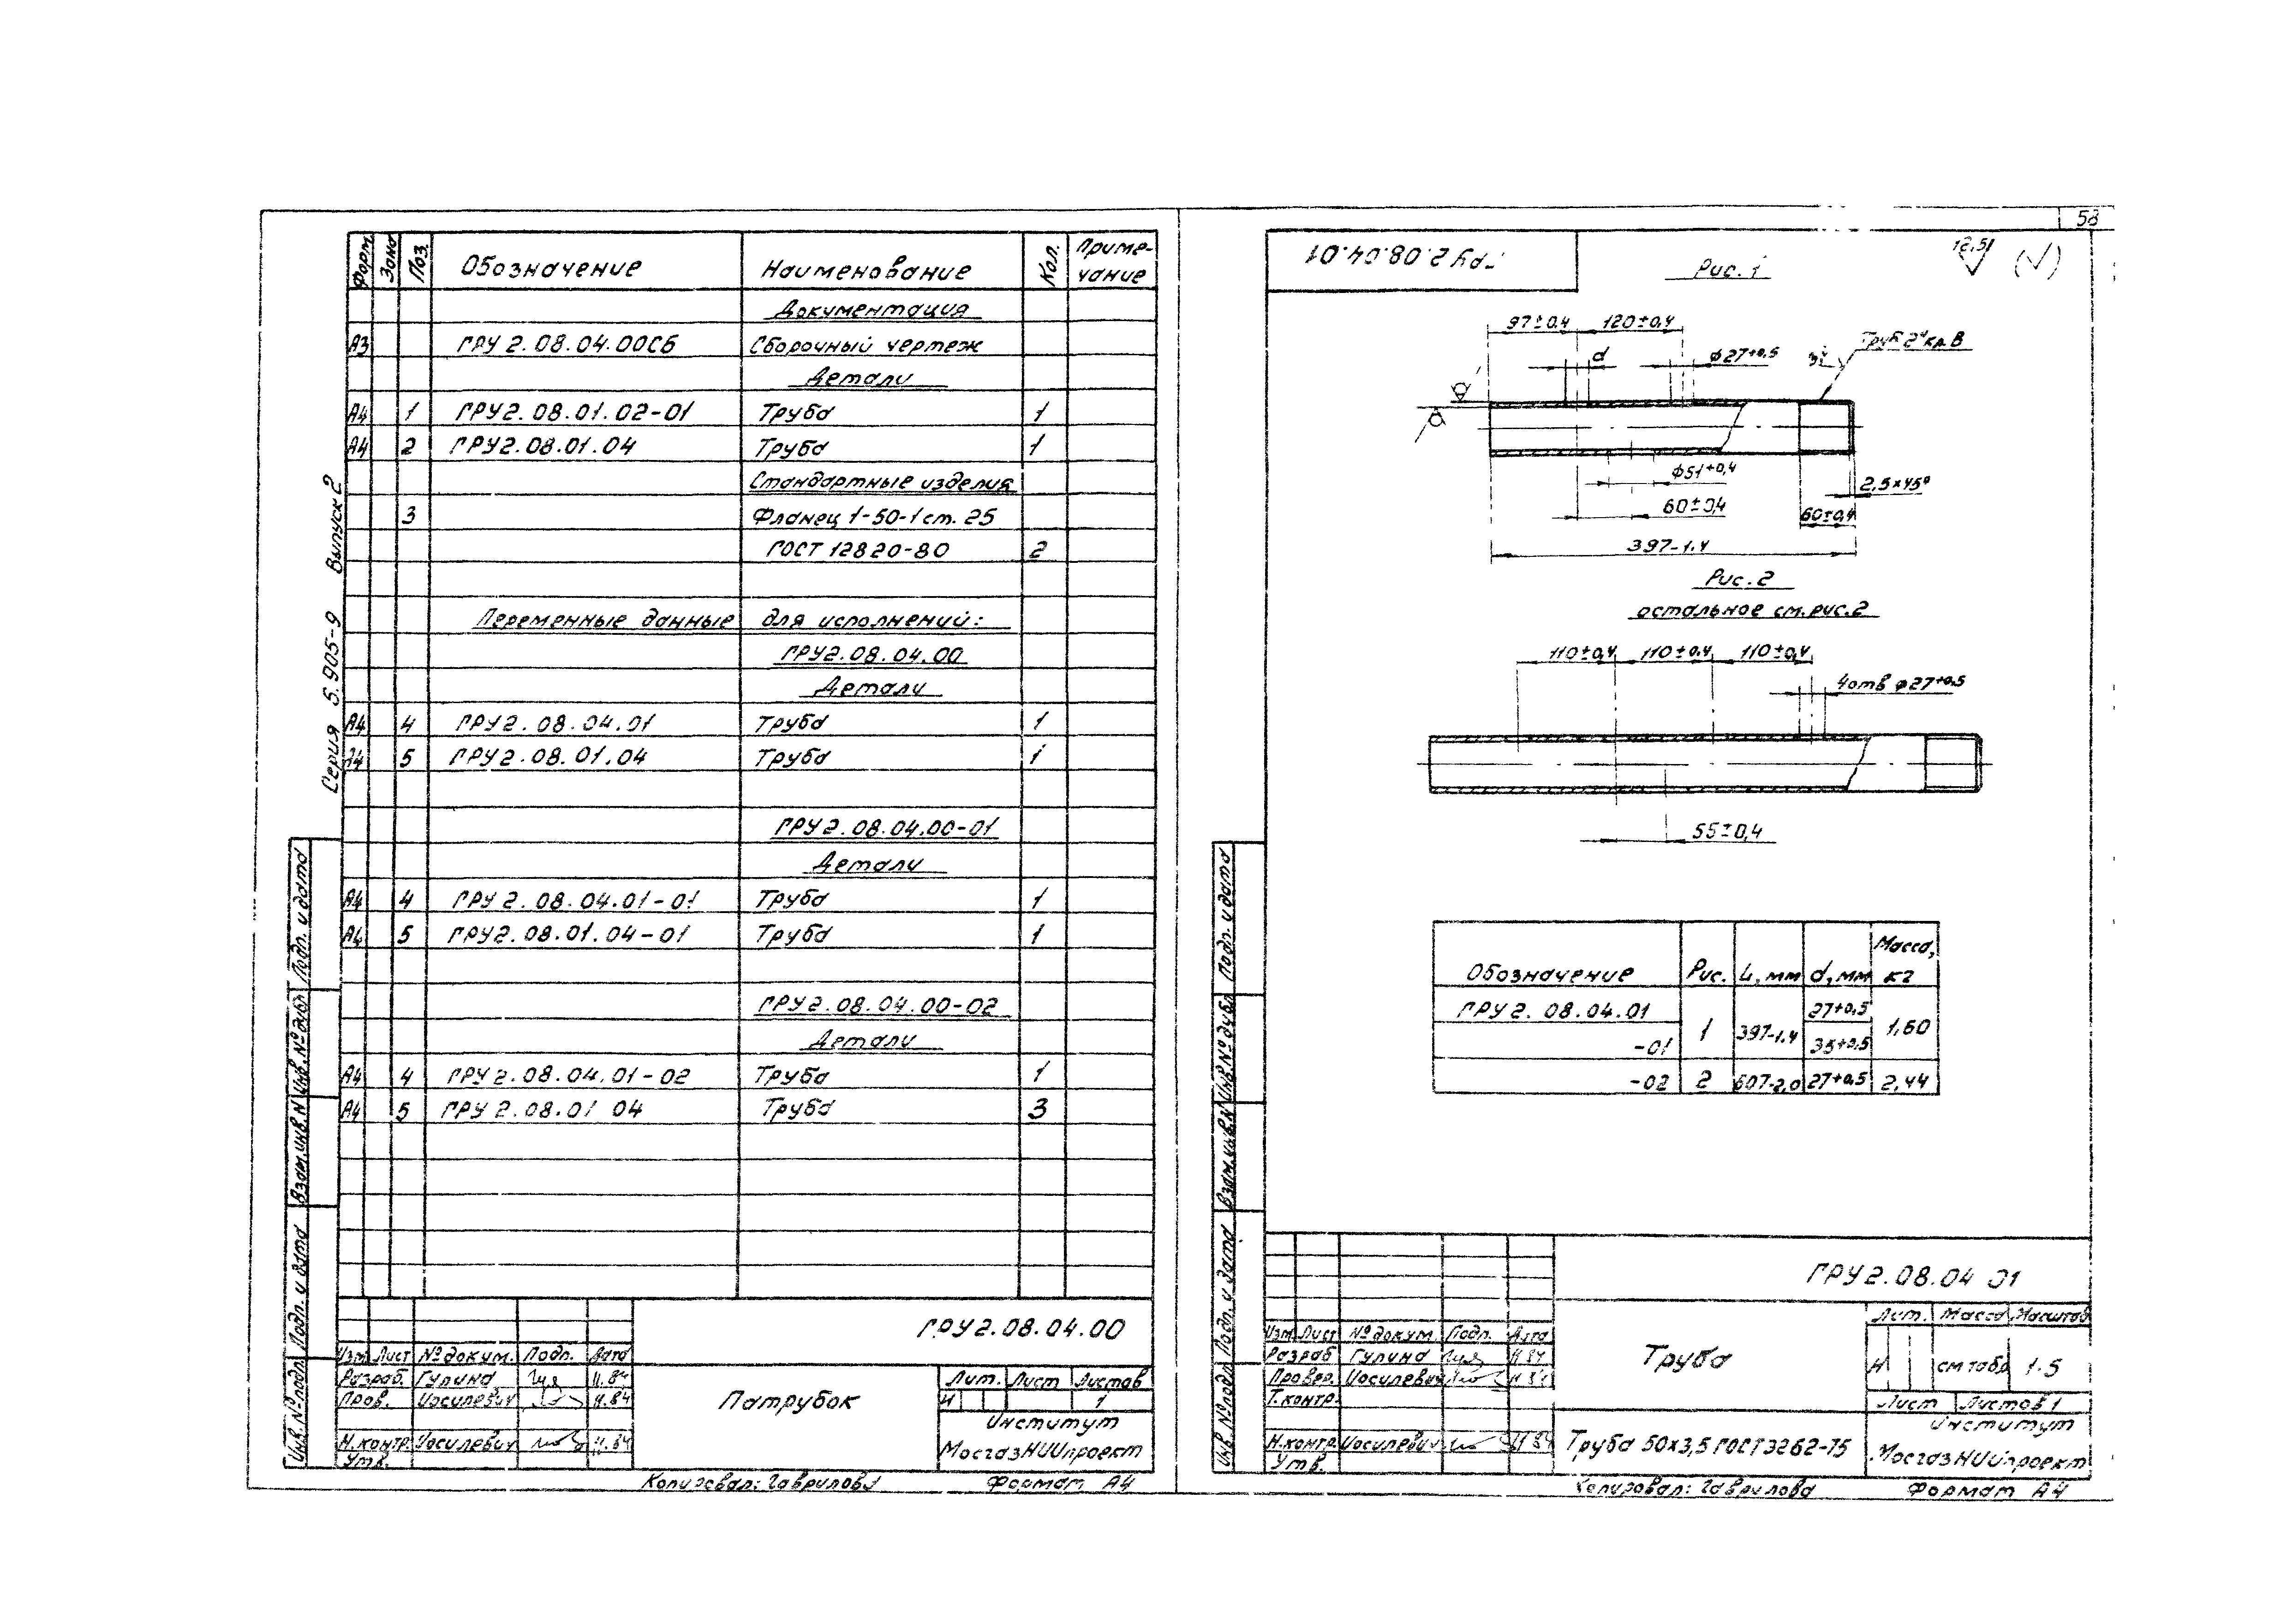 58
Форм. Зона Поз. Обозначение Наименование Кол. Приме-
чание
Документация
А3 ГРУ 2.08.04.00СБ Сборочный чертеж
Детали
А4 1 ГРУ2.08.01.02-01 Труба 1
А4 2 ГРУ2.08.01.04 Труба 1
Стандартные изделия
3 Фланец 1-50-1 ст. 25
ГОСТ 12820-80 2
Переменные данные для исполнений:
ГРУ2.08.04.00
Детали
А4 4 ГРУ2.08.04.01 Труба 1
А4 5 ГРУ2.08.01.04 Труба 1
ГРУ2.08.04.00-01
Детали
А4 4 ГРУ2.08.04.01-01 Труба 1
А4 5 ГРУ2.08.01.04-01 Труба 1
ГРУ2.08.04.00-02
Детали
А4 4 ГРУ2.08.04.01-02 Труба 1
А4 5 ГРУ2.08.01 04 Труба 3
Серия 5.905-9 Выпуск 2
Подп. и дата
Инв.№дубл
Взам.инв.№
Подп. и дата
Инв.№подл.
ГРУ2.08.04.00
Изм Лист №докум. Подп. Дата
Разраб. Гулина 11.84
Пров. Иосилевич 11.84
Н.контр. Иосилевич 11.84
Утв.
Патрубок
Лит. Лист Листов
И 1
Институт
МосгазНИИпроект
Копировал: Гаврилова Формат А4
ГРУ 2.08.04.01
Рис. 1
12,5
97±0,4 120±0,4
d ø27+0,5
Труб 2" кл.В
ø51+0,4
2,5×45°
60±0,4 60±0,4
397-1.4
Рис. 2
остальное см. рис.2
110±0,4 110±0,4 110±0,4
4отв ø27+0,5
55±0,4
Обозначение Рис. L, мм d, мм Масса,
кг
ГРУ 2.08.04.01 1 397-1.4 27+0,5 1,60
-01 35+0,5
-02 2 607-2,0 27+0,5 2,44
Подп. и дата
Инв.№дубл
Взам.инв.№
Подп. и дата
Инв.№подл
ГРУ2.08.04 01
Изм Лист №докум. Подп. Дата
Разраб Гулина 11.84
Провер. Иосилевич 11.84
Т.контр.
Н.контр. Иосилевич 11.84
Утв.
Труба
Лит. Масса Масштаб
И см табл 1-5
Лист Листов 1
Труба 50×3,5 ГОСТ3262-75
Институт
МосгазНИИпроект
Копировал: Гаврилова Формат А4